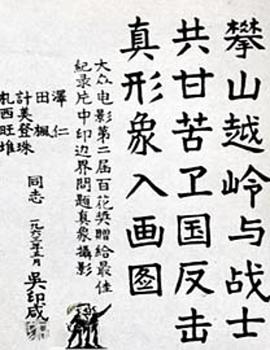 攀山越岭与战士
共甘苦卫国反击
真形象入画图
大众电影第二届百花奖贈給最佳
紀录片中印边界問題真象攝影
澤仁
田楓
計美登珠
札西旺堆
同志
一九六三年五月
吳印咸